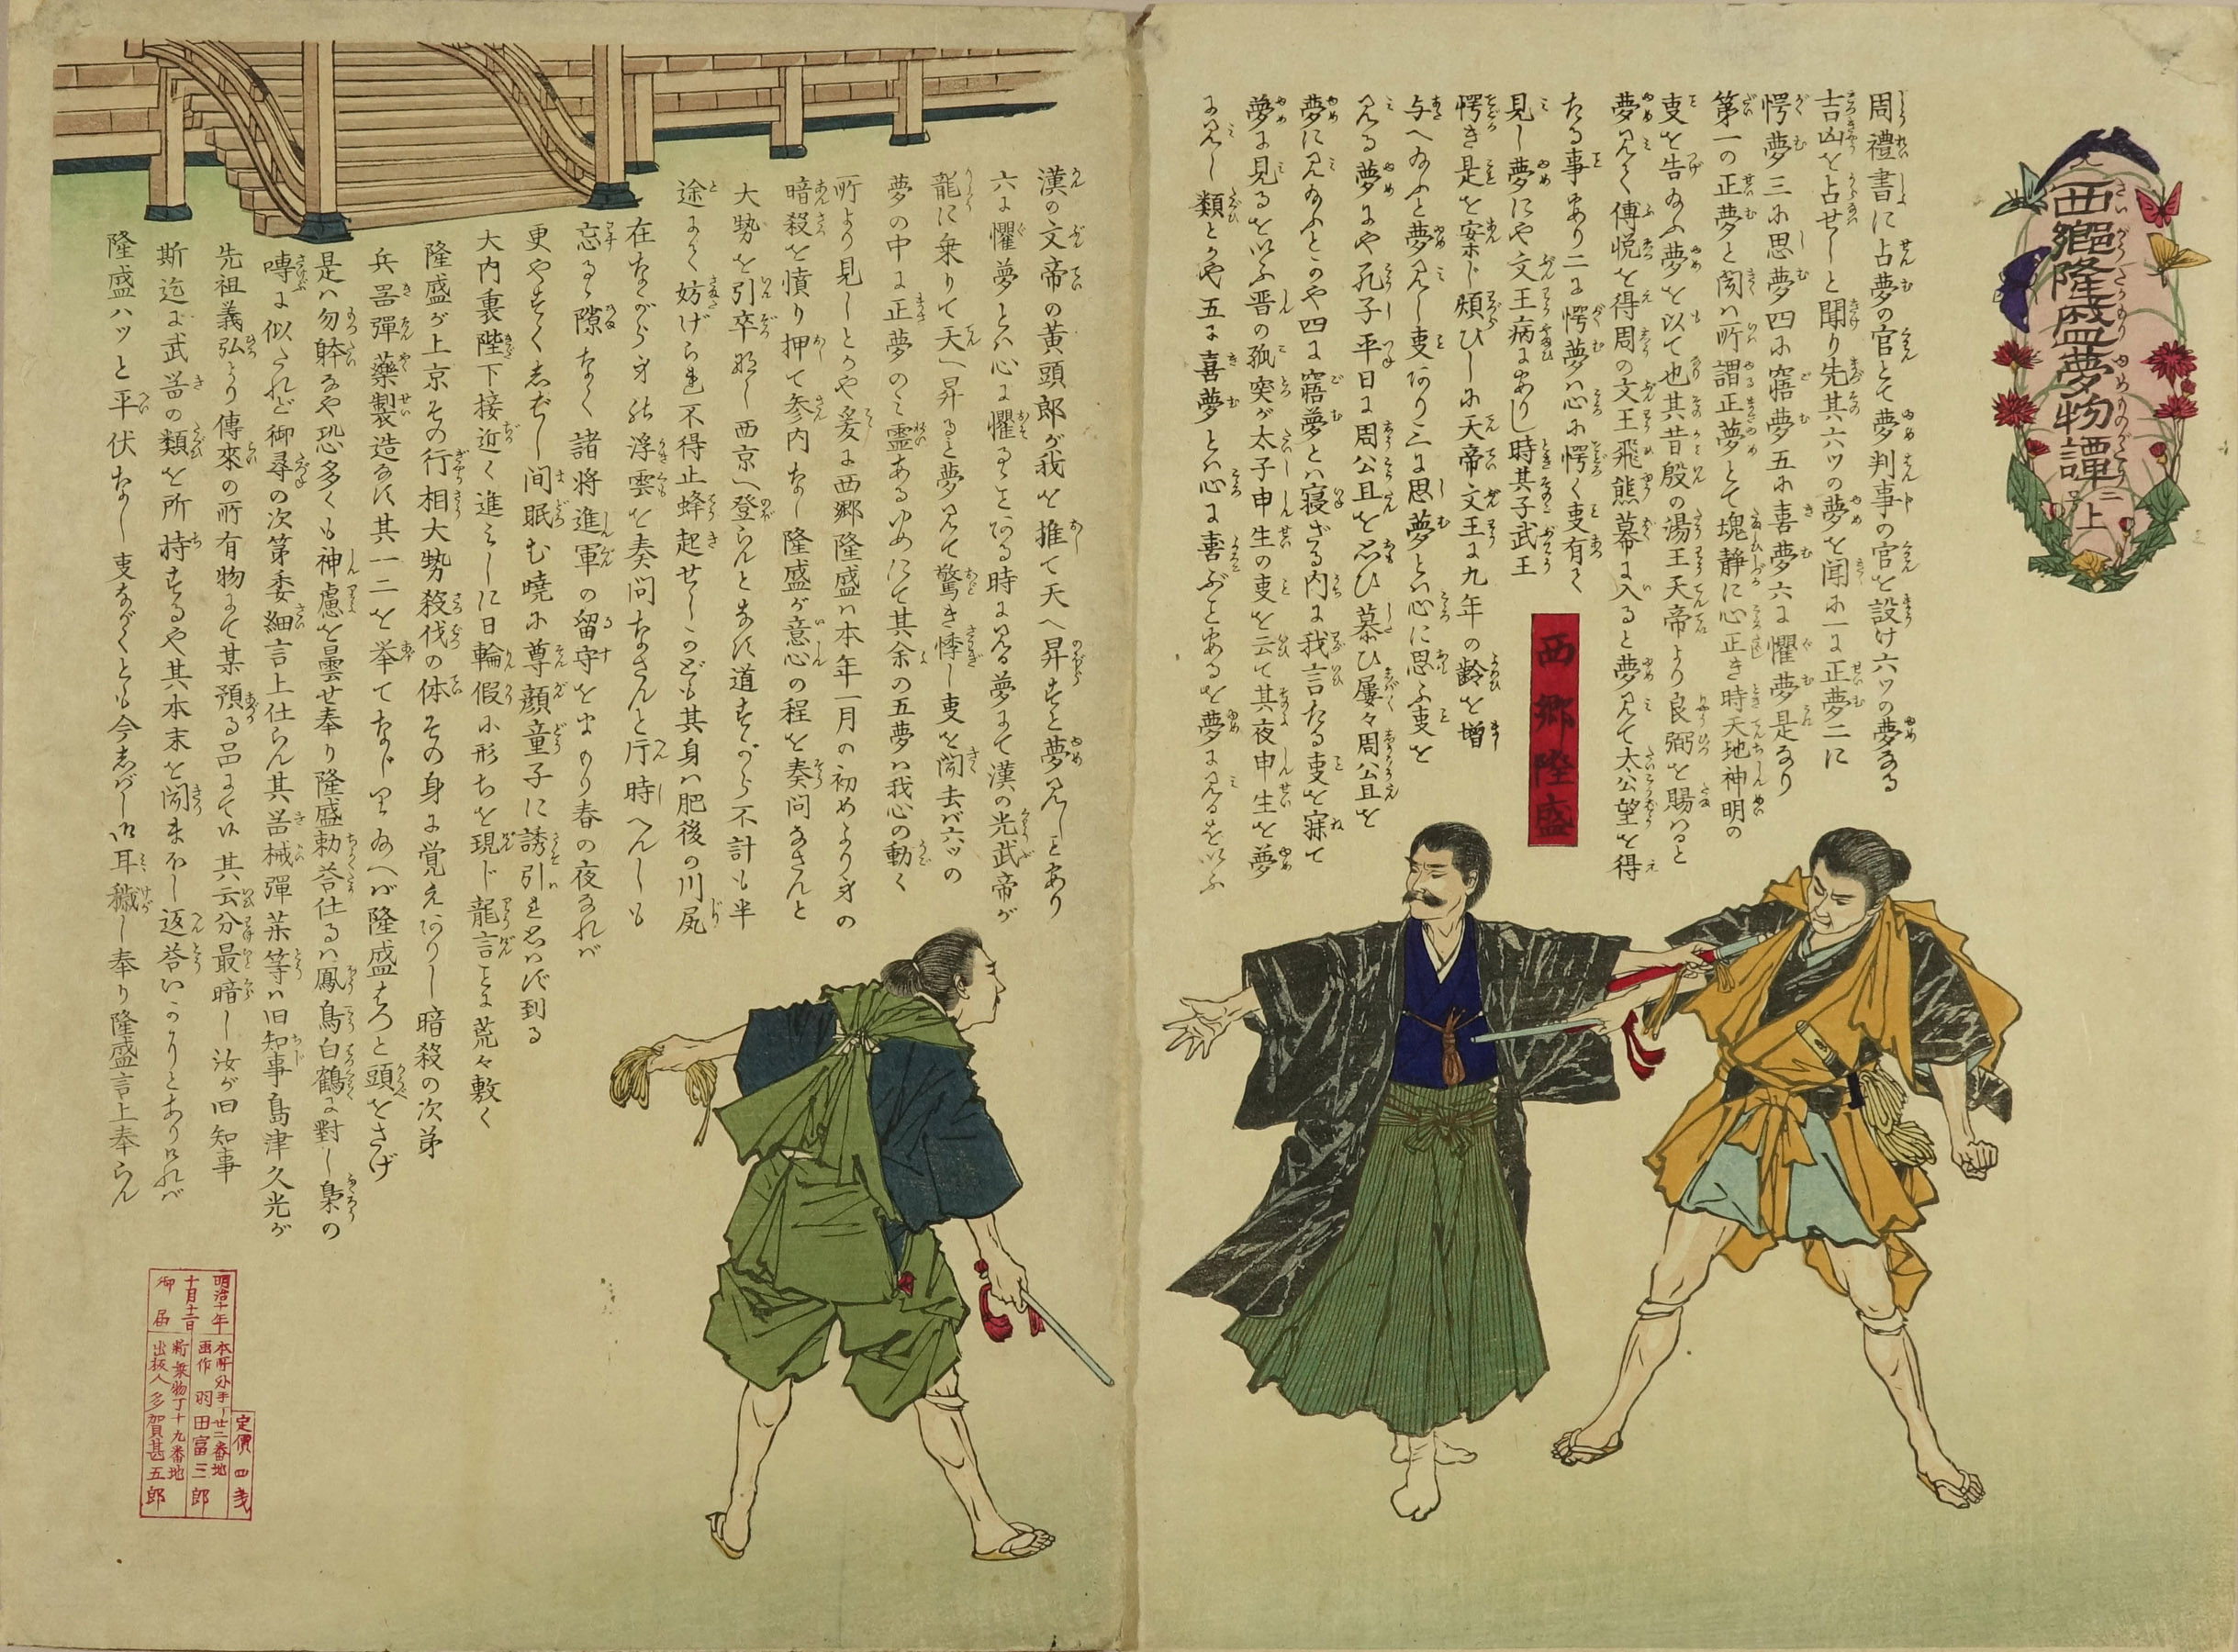 西郷隆盛夢物譚 二号上
周禮書に占夢の官とて夢判事の官を設け六ツの夢なる
吉凶を占せしと聞り先其六ツの夢を聞に一に正夢二に
愕夢三に思夢四に寤夢五に喜夢六に懼夢是なり
第一の正夢と聞ハ所謂正夢とて塊静に心正き時天地神明の
叓を告給ふ夢を以て也其昔殷の湯王天帝より良弼を賜はると
夢見て傅悦を得周の文王飛熊幕に入ると夢見て太公望を得
たる事あり二に愕夢ハ心に愕く叓有て
見し夢にや文王病にありし時其子武王
愕き是を案じ煩ひしに天帝文王に九年の齢を増
与へ給ふと夢見し叓あり三に思夢とハ心に思ふ叓を
見る夢にや孔子平日に周公且を思ひ慕ひ屡々周公且を
夢に見給ふとかや四に寤夢とハ寝ざる内に我言たる叓を寐て
夢に見るを以ふ晋の狐突が太子申生の叓を云て其夜申生を夢
に見し類とかや五に喜夢とハ心に喜ぶことあるを夢に見るを以ふ
西郷隆盛
漢の文帝の黄頭郎が我を推て天へ昇すと夢見しとあり
六に懼夢とハ心に懼るゝことある時に見る夢にて漢の光武帝が
龍に乗りて天へ昇ると夢見て驚き悸し叓を聞去バ六ツの
夢の中に正夢のミ霊あるゆめにて其余の五夢ハ我心の動く
所より見しとかや爰に西郷隆盛ハ本年一月の初めより身の
暗殺を憤り押て参内なし隆盛が意心の程を奏問なさんと
大勢を引卒なし西京へ登らんとなす道すがら不計も半
途にて妨げられ不得止蜂起せしかども其身ハ肥後の川尻
在ながら身は浮雲を奏問なさんと片時へんしも
忘るゝ隙なく諸将進軍の留守をまもり春の夜なれバ
更やすくしばし間眠む暁に尊顔童子に誘引れ思はず到る
大内裏陛下接近く進ミしに日輪假に形ちを現じ龍言ことに荒々敷く
隆盛が上京その行相大勢殺伐の体その身に覚えありし暗殺の次第
兵器彈藥製造なす其一二を挙てなじり給へバ隆盛はつと頭をさげ
是ハ勿体なや恐多くも神慮を曇せ奉り隆盛勅答仕るハ鳳鳥白鶴に對し梟の
囀に似たれど御尋の次第委細言上仕らん其器械彈薬等ハ旧知事島津久光が
先祖義弘より傳來の所有物にて某預る品にて候其云分最暗し汝が旧知事
斯迄に武器の類を所持するや其本末を聞まほし返答いかにとありけれバ
隆盛ハツと平伏なし叓ながくとも今しばし御耳穢し奉り隆盛言上奉らん
明治十年
十月十二日
御届
本所外手丁廿二番地
画作 羽田富三郎
新乗物丁十九番地
出板人 多賀甚五郎
定價四戋